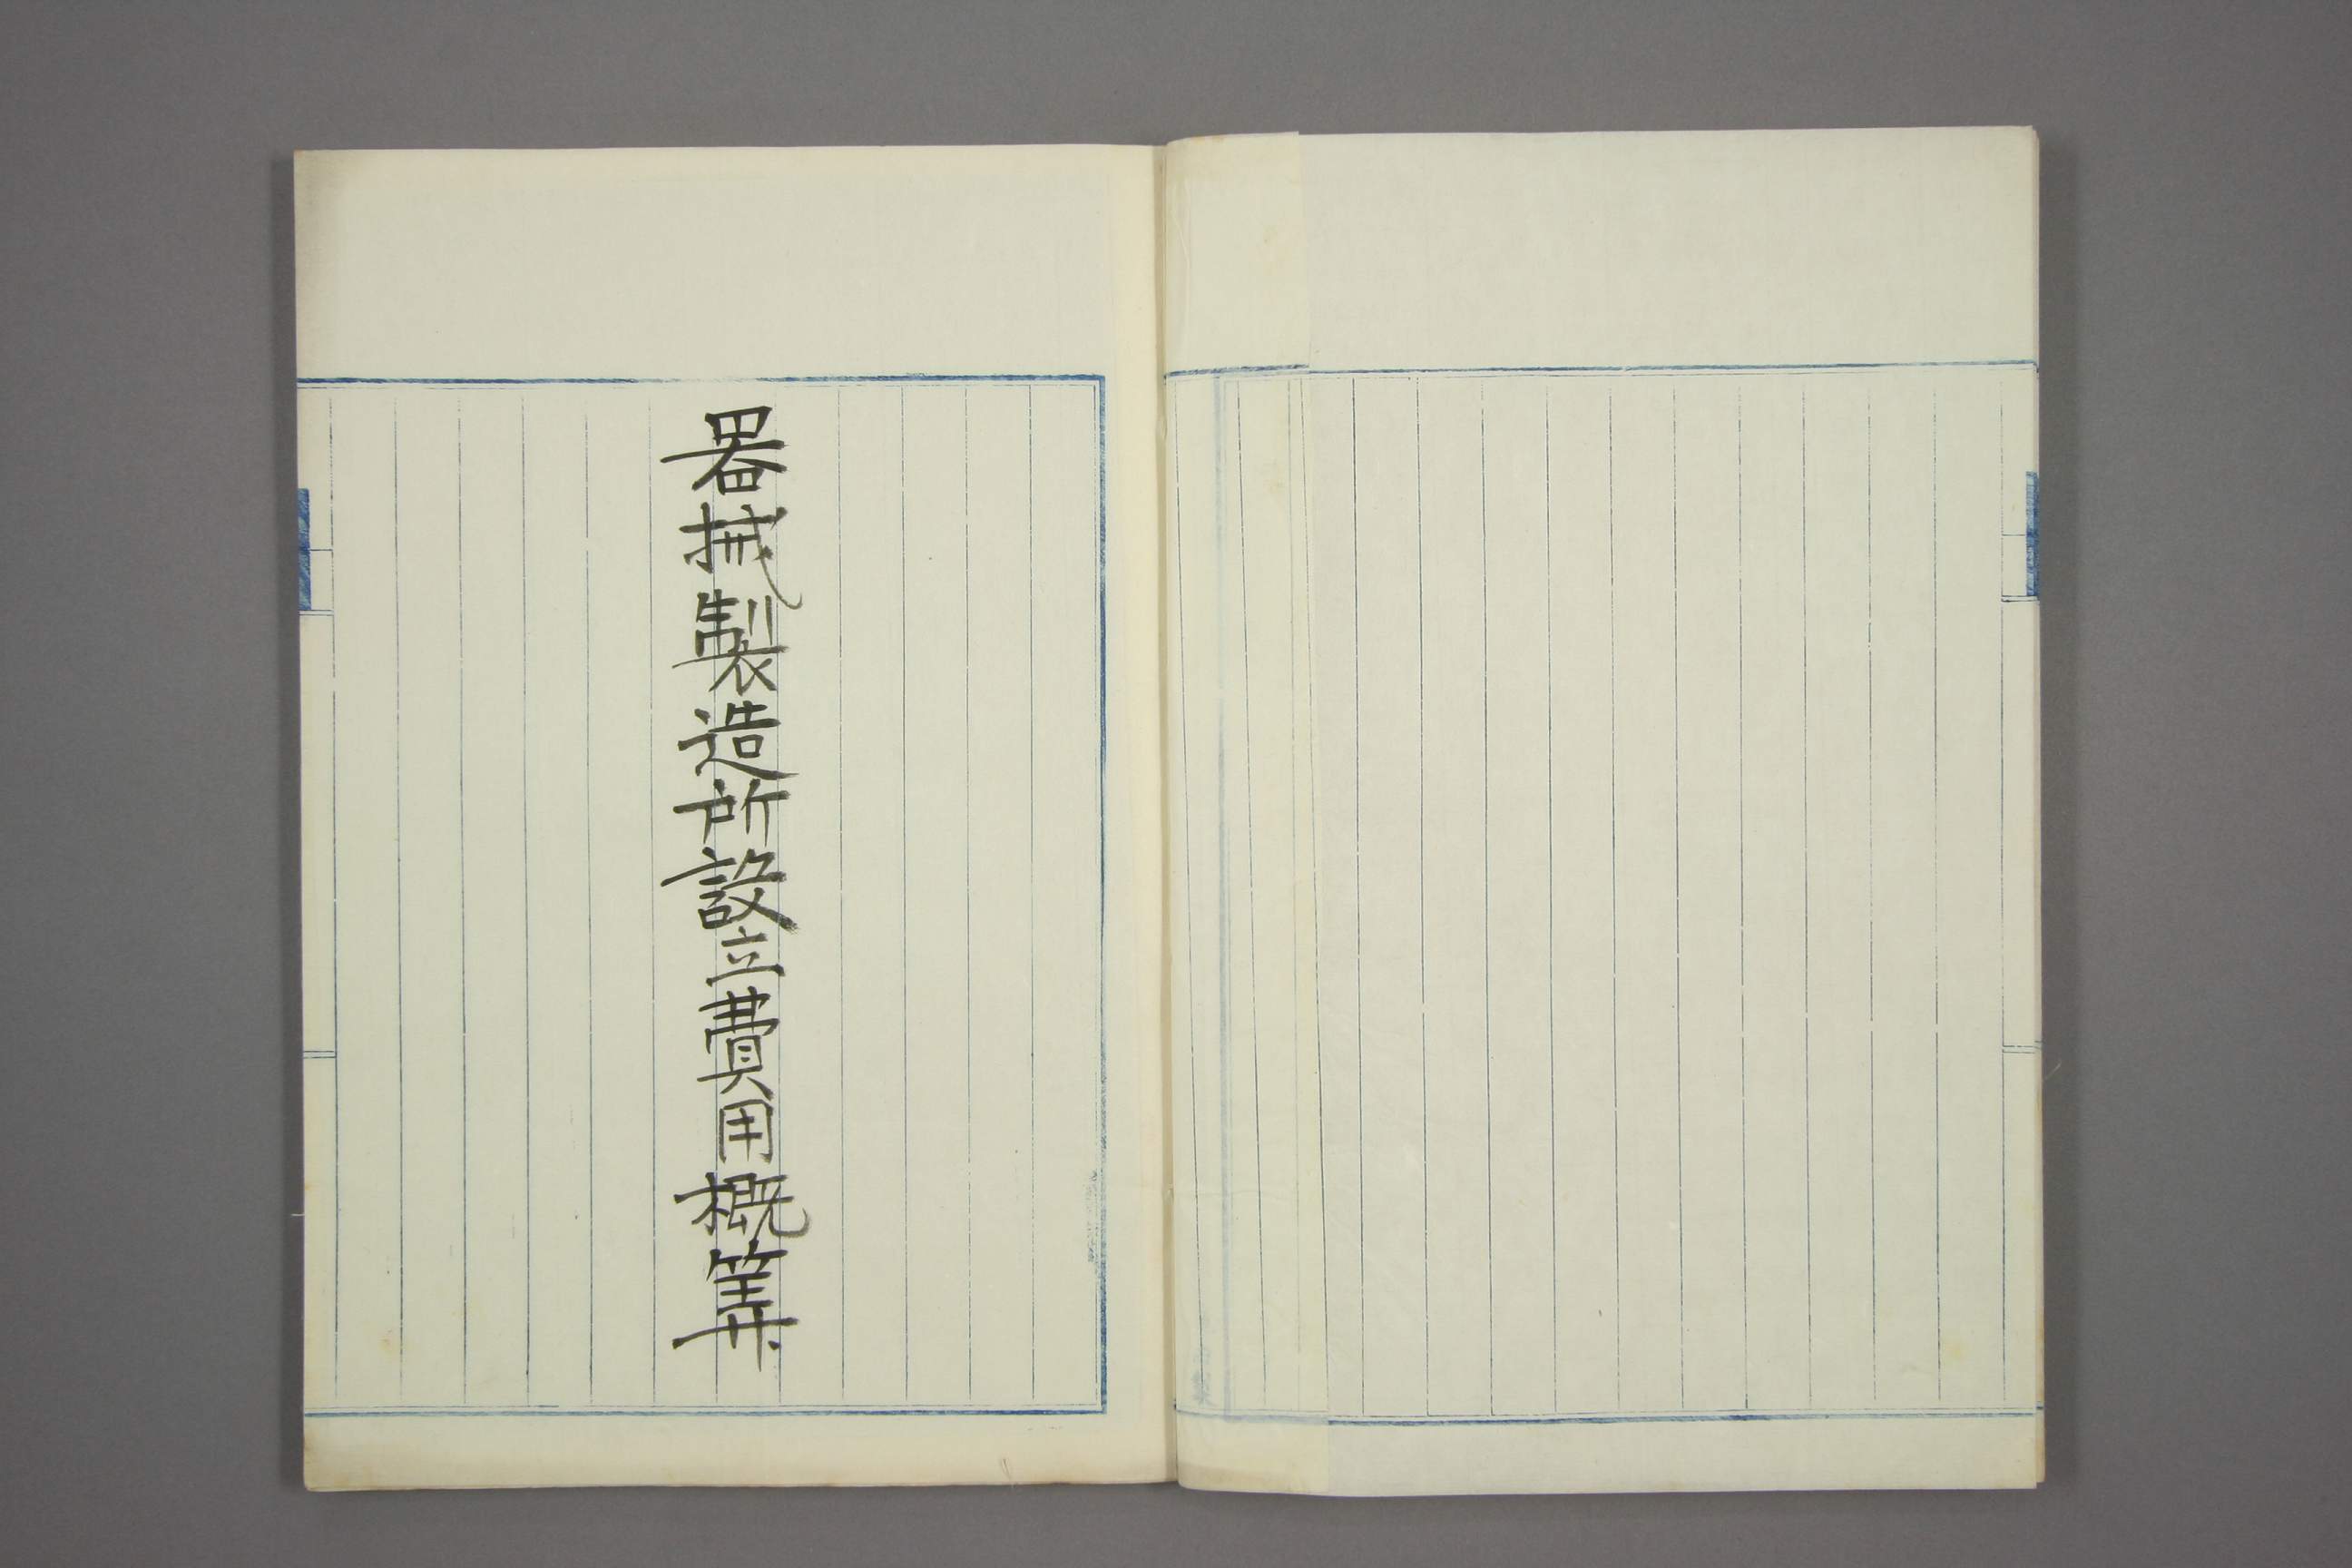 器械製造所設立費用概筭